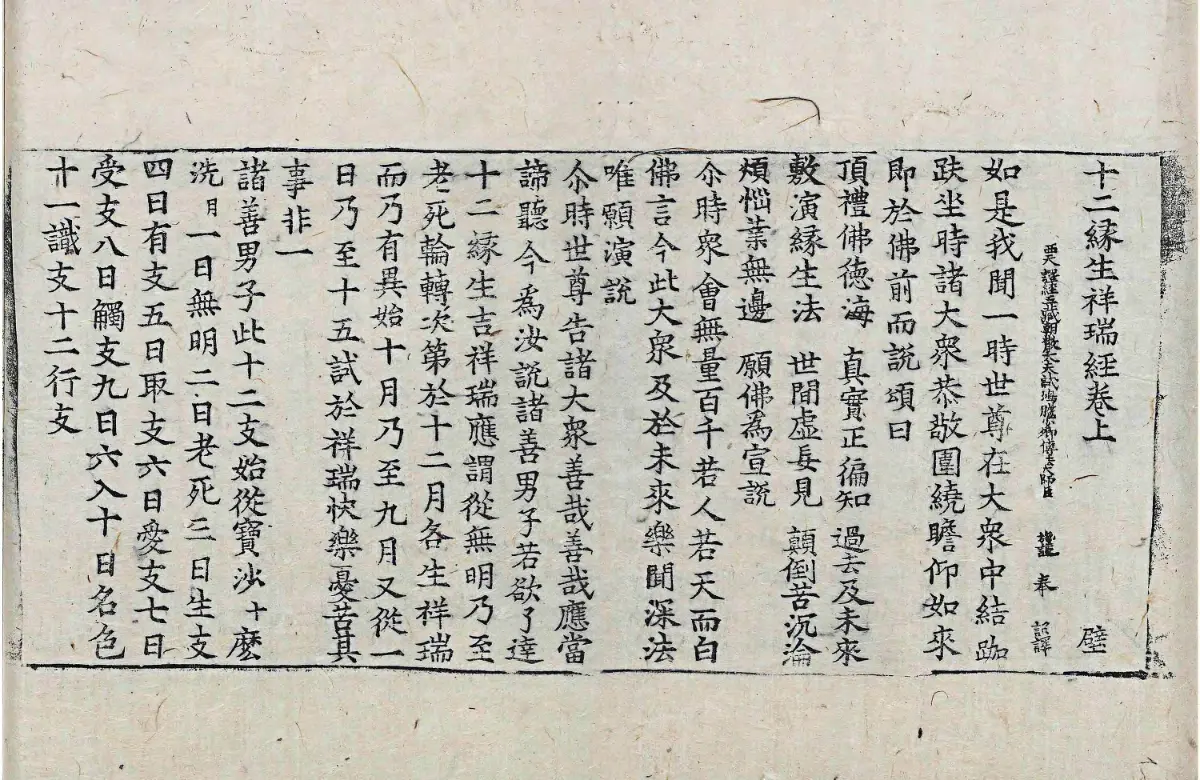 十二縁生祥瑞經卷上　璧
西天譯經三藏朝散大夫試鴻臚卿傳法大師臣　施護　奉　詔譯
如是我聞一時世尊在大衆中結跏
趺坐時諸大衆恭敬圍繞瞻仰如來
即於佛前而說頌曰
頂禮佛德海　真實正徧知　過去及未來
敷演縁生法　世間虛妄見　顛倒苦沉淪
煩惱業無邊　願佛爲宣說
尒時衆會無量百千若人若天而白
佛言今此大衆及於未來樂聞深法
唯願演說
尒時世尊告諸大衆善哉善哉應當
諦聽今爲汝說諸善男子若欲了達
十二縁生吉祥瑞應謂從無明乃至
老死輪轉次第於十二月各生祥瑞
而乃有異始十月乃至九月又從一
日乃至十五試於祥瑞快樂憂苦其
事非一
諸善男子此十二支始從寶沙十麽
洗月一日無明二日老死三日生支
四日有支五日取支六日愛支七日
受支八日觸支九日六入十日名色
十一識支十二行支